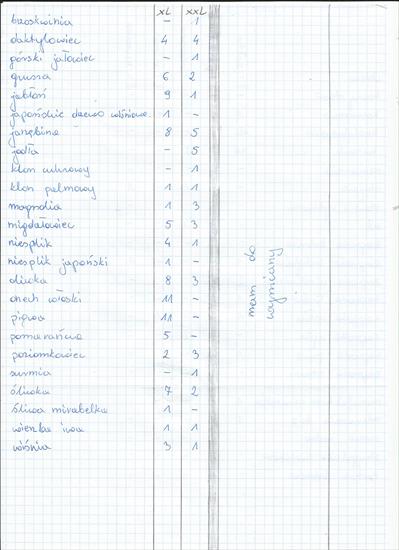 XL XXL
brzoskwinia - 1
daktylowiec 4 4
górski jałowiec - 1
grusza 6 2
jabłoń 9 1
japońskie drzewo wiśniowe. 1 -
jarzębina 8 5
jodła - 5
klon cukrowy - 1
klon palmowy 1 1
magnolia 1 3
migdałowiec 5 3
niesplik 4 1
niesplik japoński 1 -
oliwka 8 3
orzech włoski 11 -
pigwa 11 -
pomarańcza 5 -
poziomkowiec 2 3
surmia - 1
śliwka 7 2
śliwa mirabelka 1 -
wierzba iwa 1 1
wiśnia 3 1
mam do
wymiany